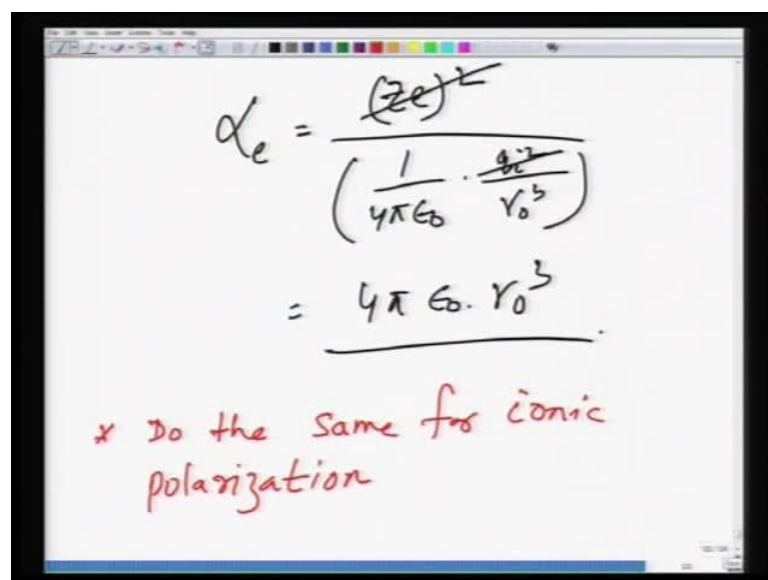 αe = (Ze)² / (1/4πε0 · /r0³)
= 4π ε0. r0³
* Do the same for ionic
polarization